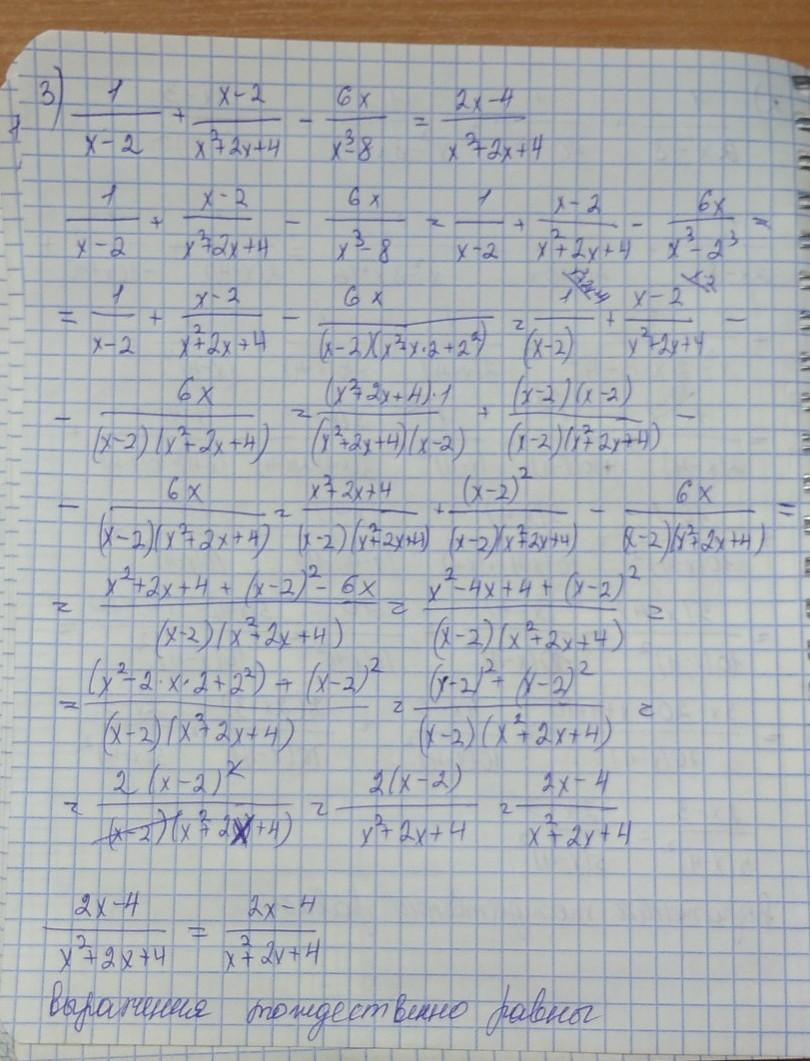 3) 1/(x-2) + (x-2)/(x²+2x+4) - 6x/(x³-8) = (2x-4)/(x²+2x+4)
1/(x-2) + (x-2)/(x²+2x+4) - 6x/(x³-8) = 1/(x-2) + (x-2)/(x²+2x+4) - 6x/(x³-2³) =
= 1/(x-2) + (x-2)/(x²+2x+4) - 6x/((x-2)(x²+x·2+2²)) = 1/(x-2) + (x-2)/(x²+2x+4) -
- 6x/((x-2)(x²+2x+4)) = (x²+2x+4)·1/((x²+2x+4)(x-2)) + (x-2)(x-2)/((x-2)(x²+2x+4)) -
- 6x/((x-2)(x²+2x+4)) = (x²+2x+4)/((x-2)(x²+2x+4)) + (x-2)²/((x-2)(x²+2x+4)) - 6x/((x-2)(x²+2x+4)) =
= (x²+2x+4+(x-2)²-6x)/((x-2)(x²+2x+4)) = (x²-4x+4+(x-2)²)/((x-2)(x²+2x+4)) =
= ((x²-2·x·2+2²)+(x-2)²)/((x-2)(x²+2x+4)) = ((x-2)²+(x-2)²)/((x-2)(x²+2x+4)) =
= 2(x-2)²/((x-2)(x²+2x+4)) = 2(x-2)/(x²+2x+4) = (2x-4)/(x²+2x+4)
(2x-4)/(x²+2x+4) = (2x-4)/(x²+2x+4)
выражения тождественно равны